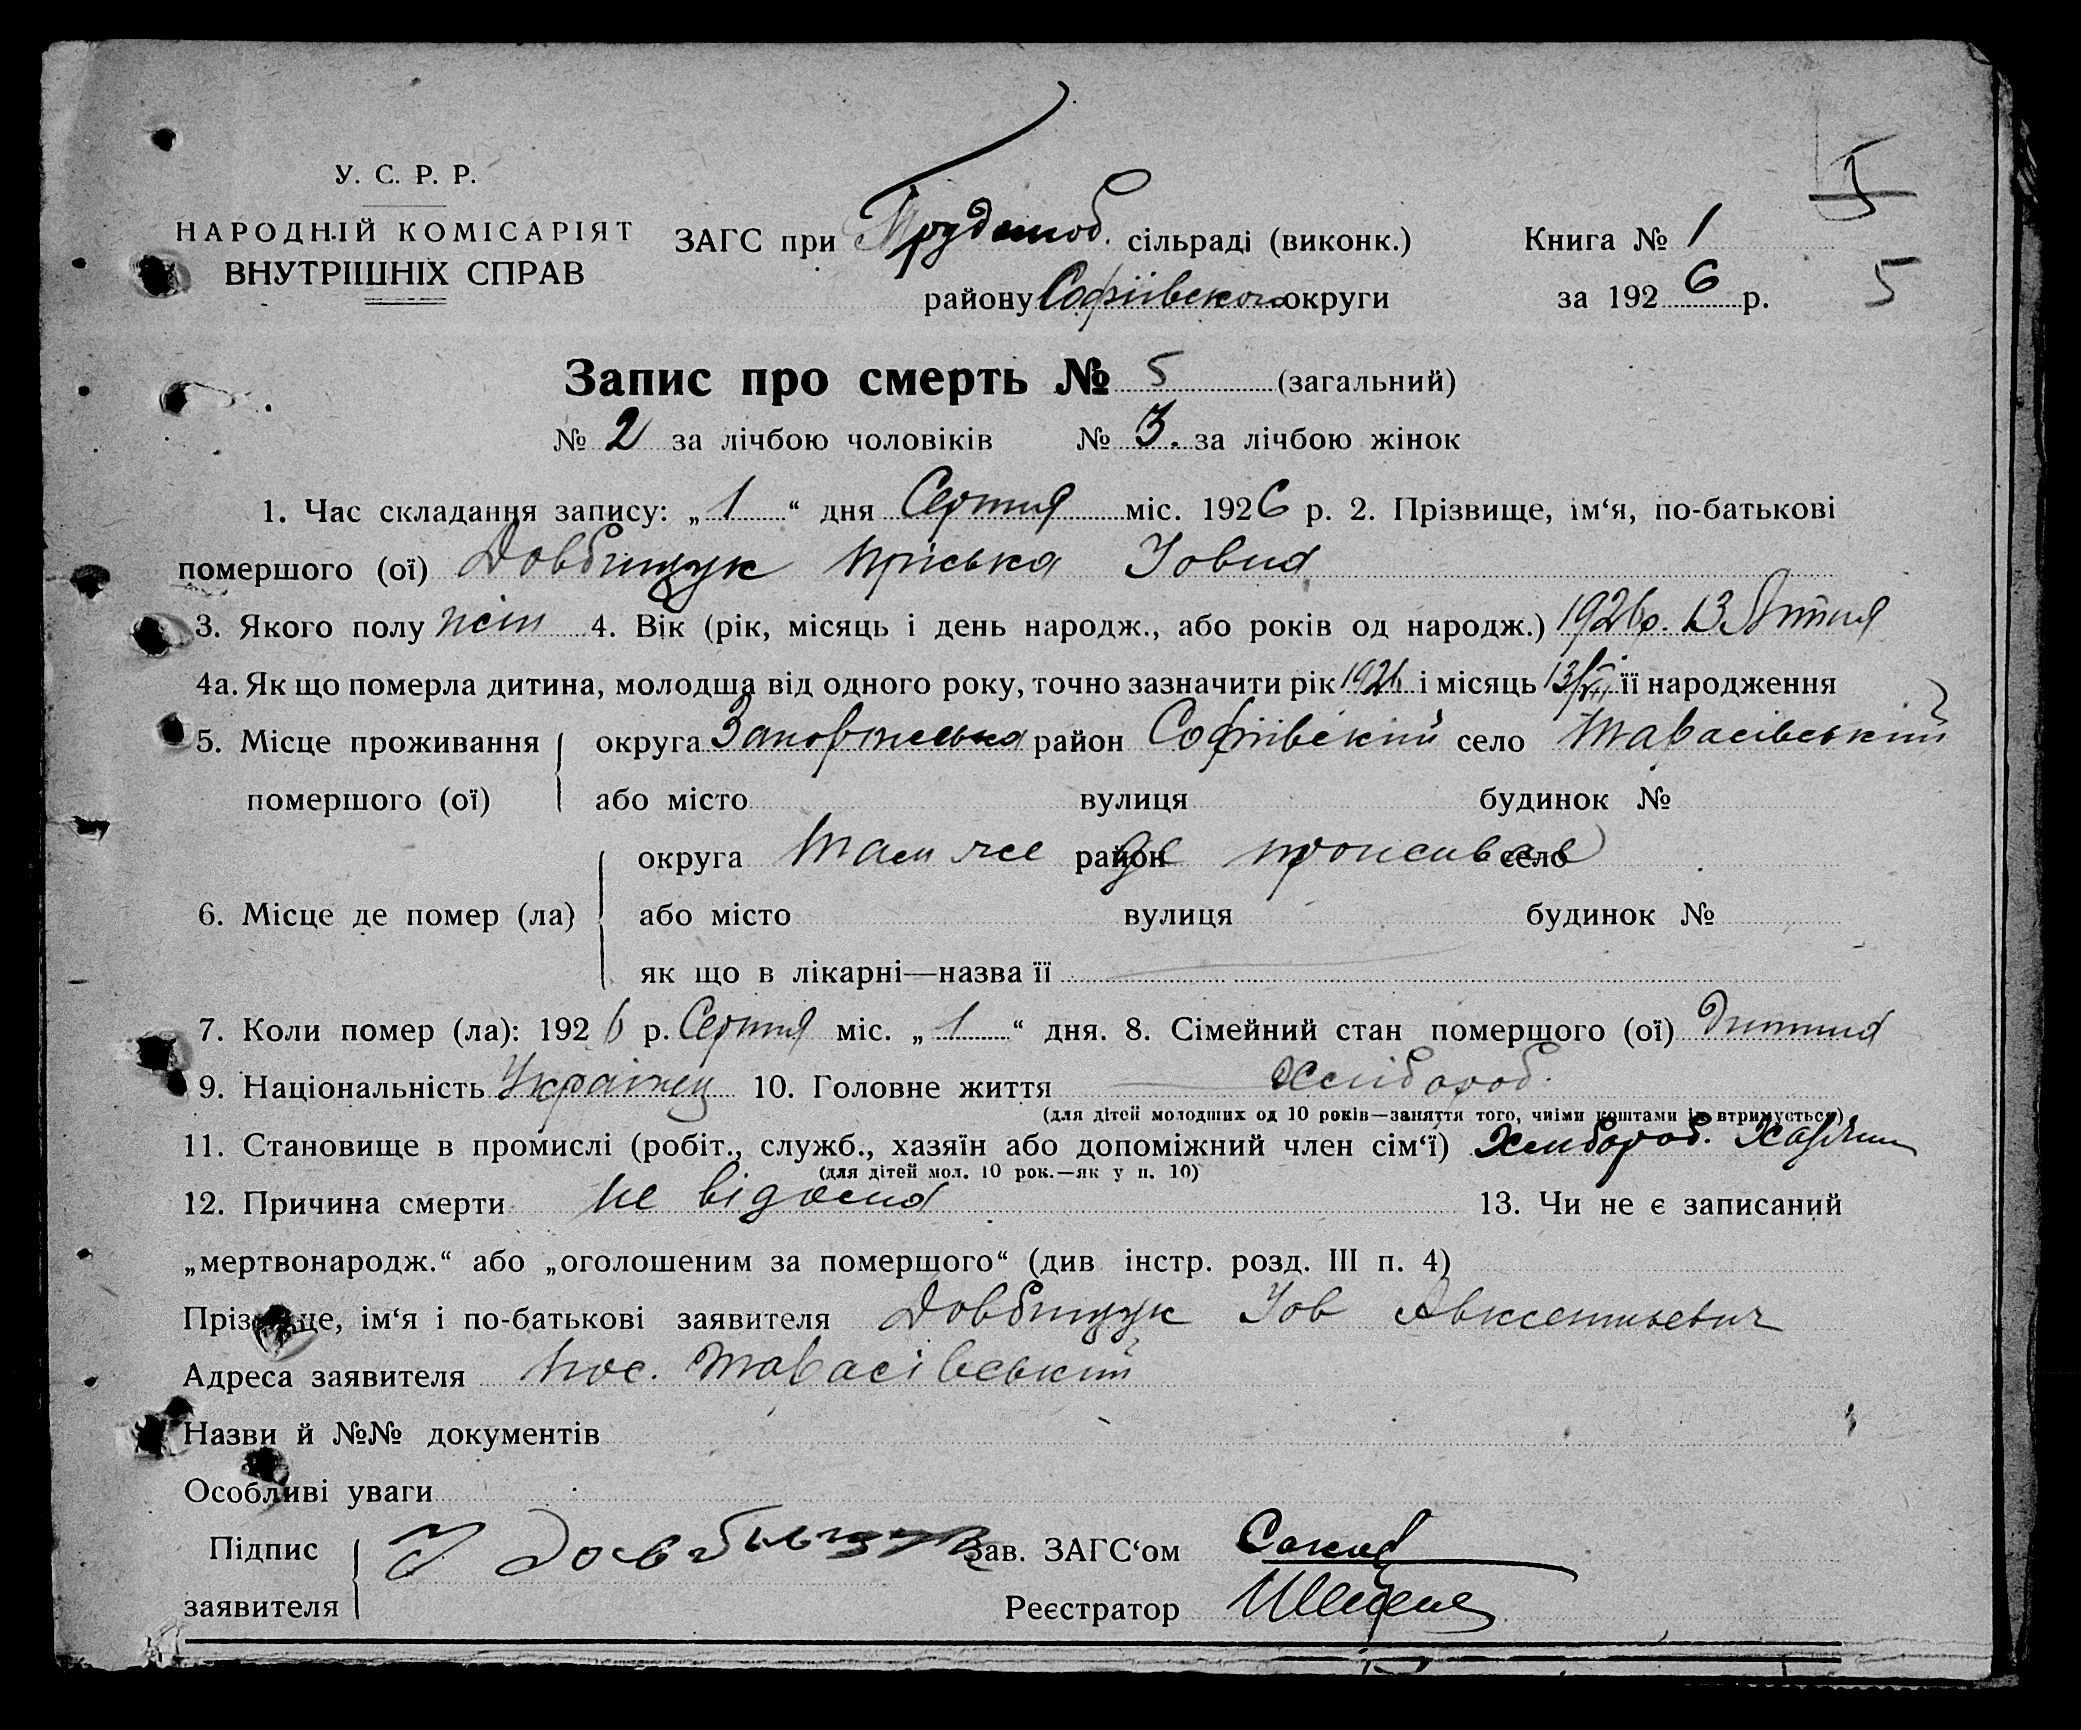 I
У. С. Р. Р.
НАРОДНІЙ КОМІСАРІЯТ
ВНУТРІШНІХ СПРАВ
ЗАГС при сільраді (виконк.)
району Софіївского округи
Книга № 1
за 1926 р.
5
Запис про смерть № 5 (загальний)
№ 2 за лічбою чоловіків № 3. за лічбою жінок
1. Час складання запису: „1“ дня Серпня міс. 1926 р. 2. Прізвище, ім‘я, по-батькові
помершого (ої) Довбищук Пріська Іовна
3. Якого полу жін 4. Вік (рік, місяць і день народж., або років од народж.) 1926 р. 13
4а. Як що померла дитина, молодша від одного року, точно зазначити рік 1926 і місяць 13/VII її народження
5. Місце проживання округа Запорізська район Софіївский село Тарасівський
помершого (ої) або місто вулиця будинок №
округа там же район де проживав село
6. Місце де помер (ла) або місто вулиця будинок №
як що в лікарні—назва її
7. Коли помер (ла): 1926 р. Серпня міс. „1“ дня. 8. Сімейний стан помершого (ої) Дитина
9. Національність Українец 10. Головне життя Хлібороб.
(для дітей молодших од 10 років—заняття того, чиїми коштами їх втримується)
11. Становище в промислі (робіт., служб., хазяїн або допоміжний член сім‘ї) Хлибороб.
(для дітей мол. 10 рок.—як у п. 10)
12. Причина смерти не відома 13. Чи не є записаний
„мертвонародж.“ або „оголошеним за помершого“ (див інстр. розд. III п. 4)
Прізвище, ім‘я і по-батькові заявителя Довбищук Іов Авксентьевич
Адреса заявителя пос. Тарасівський
Назви й №№ документів
Особливі уваги
Підпис заявителя І Довбыщук
Зав. ЗАГС‘ом
Реєстратор